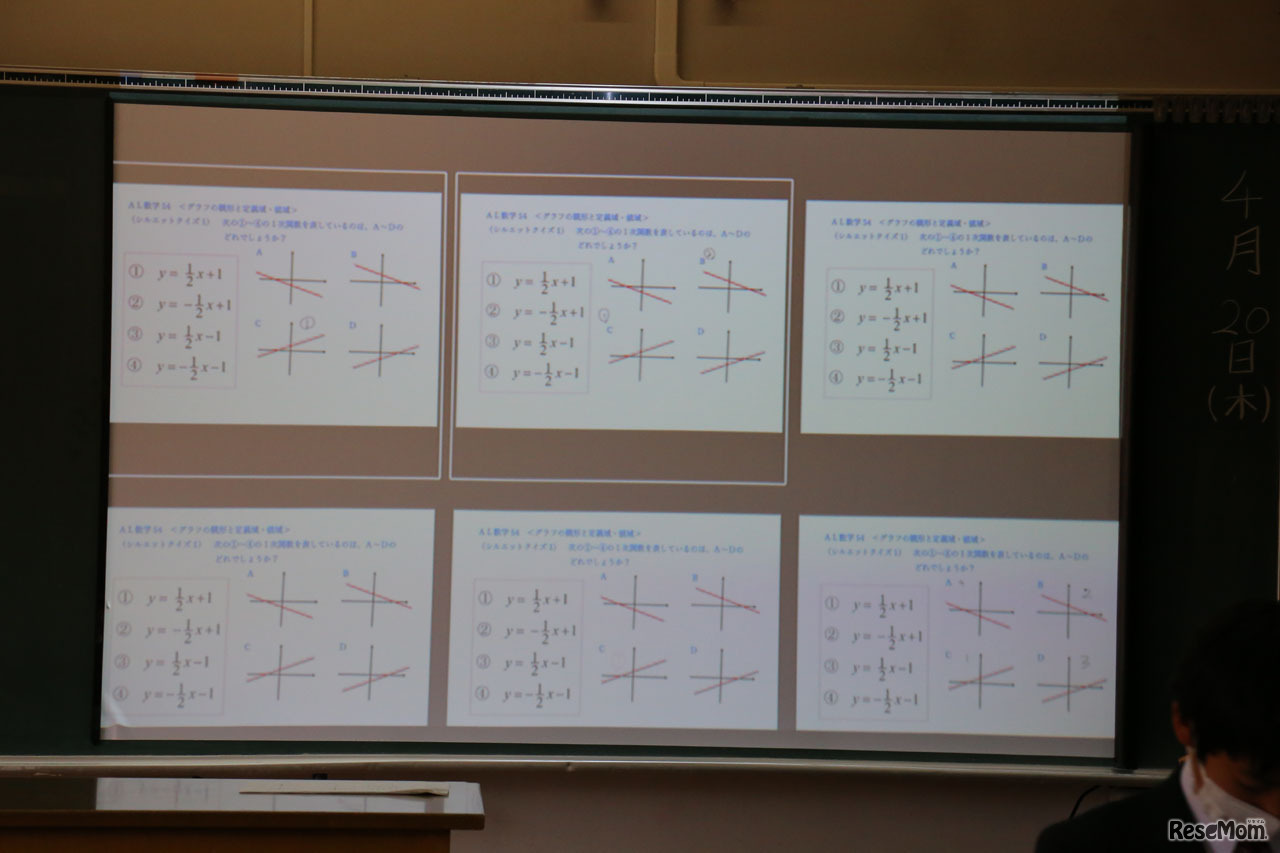 AL数学54 <グラフの概形と定義域・値域>
(シルエットクイズ1) 次の①~④の1次関数を表しているのは、A~Dの
どれでしょうか?
① y=1/2x+1
② y=-1/2x+1
③ y=1/2x-1
④ y=-1/2x-1
A
B
C
①
D
AL数学54 <グラフの概形と定義域・値域>
(シルエットクイズ1) 次の①~④の1次関数を表しているのは、A~Dの
どれでしょうか?
① y=1/2x+1
② y=-1/2x+1
③ y=1/2x-1
④ y=-1/2x-1
A
B
②
C
D
AL数学54 <グラフの概形と定義域・値域>
(シルエットクイズ1) 次の①~④の1次関数を表しているのは、A~Dの
どれでしょうか?
① y=1/2x+1
② y=-1/2x+1
③ y=1/2x-1
④ y=-1/2x-1
A
B
C
D
AL数学54 <グラフの概形と定義域・値域>
(シルエットクイズ1) 次の①~④の1次関数を表しているのは、A~Dの
どれでしょうか?
① y=1/2x+1
② y=-1/2x+1
③ y=1/2x-1
④ y=-1/2x-1
A
B
C
D
AL数学54 <グラフの概形と定義域・値域>
(シルエットクイズ1) 次の①~④の1次関数を表しているのは、A~Dの
どれでしょうか?
① y=1/2x+1
② y=-1/2x+1
③ y=1/2x-1
④ y=-1/2x-1
A
B
C
D
AL数学54 <グラフの概形と定義域・値域>
(シルエットクイズ1) 次の①~④の1次関数を表しているのは、A~Dの
どれでしょうか?
① y=1/2x+1
② y=-1/2x+1
③ y=1/2x-1
④ y=-1/2x-1
A
B 2
C 1
D 3
4月20日(木)
ReseMom